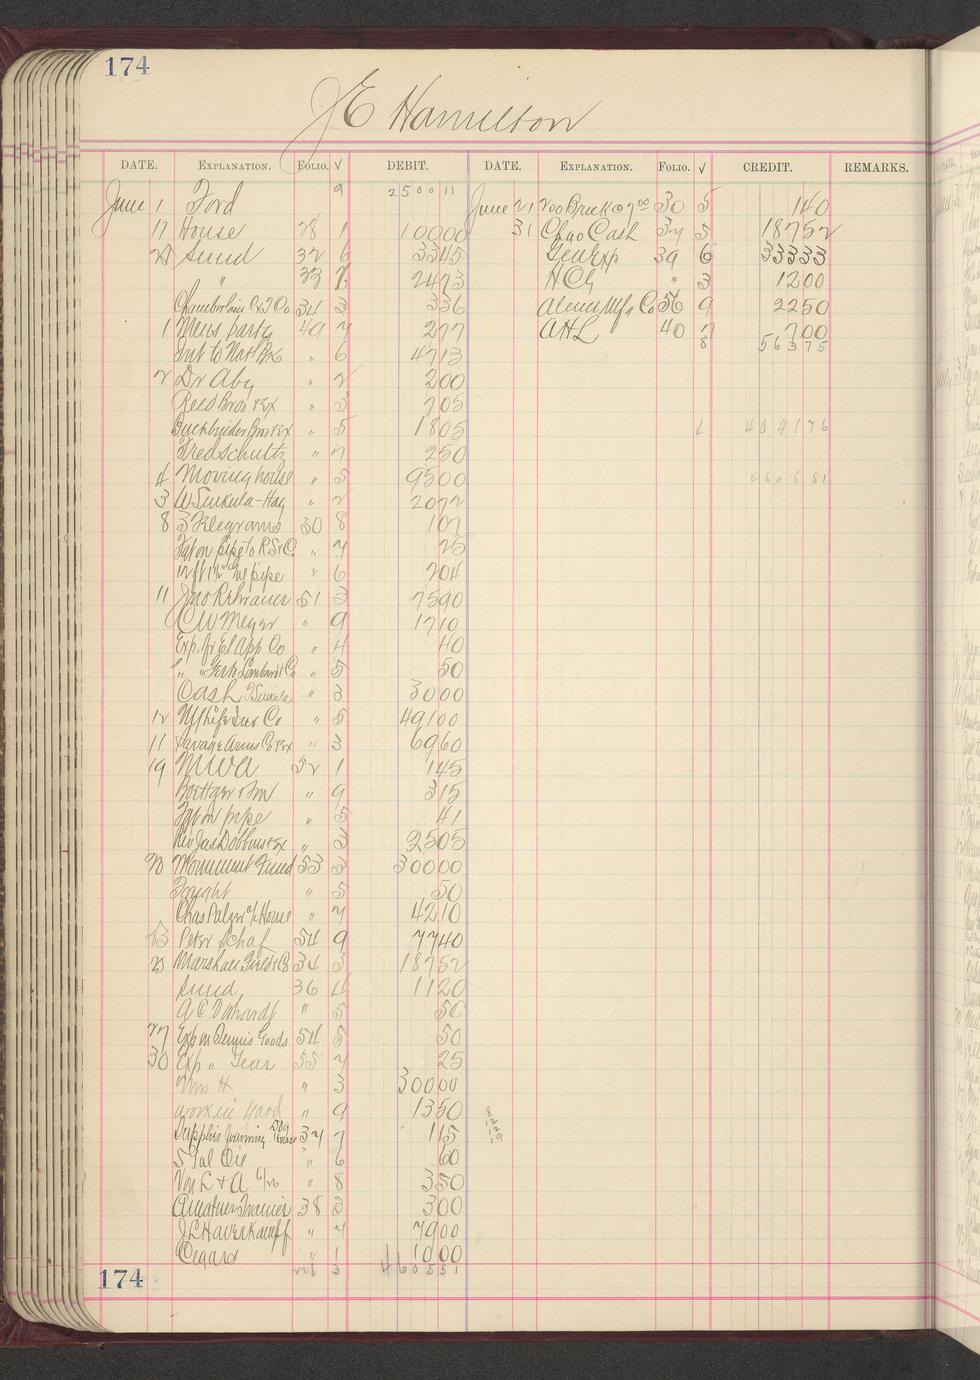 174
JE Hamilton
DATE. EXPLANATION. FOLIO. √ DEBIT. DATE. EXPLANATION. FOLIO. √ CREDIT. REMARKS.
June 1 Ford 9 250011 June 21 200 Brick @ 7⁰⁰ 30 5 140
17 House 28 1 10000 31 Chgo Cash 34 5 18752
Sund 32 6 3345 Genl Exp 39 6 33333
" 33 2473 " 3 1200
Chamberlain Co 34 3 336 Mfg Co 56 9 2250
1 Mens party 49 7 277 AHL 40 7 700
Int to Nat Bk " 6 4713 8 56375
2 Dr Aby " 2 200
Reed Bros & Ex " 3 705
Buchbinder Bros & Ex " 5 1805 409176
Fred Schultz " 7 250
4 Moving house " 5 9500 460551
3 W Sinkula-Hay " 2 2072
8 3 Telegrams 50 8 107
Frt on pipe to " 7 25
pipe " 6 204
11 Jno Rehrauer 51 3 7590
CW Meyer " 9 1710
Exp. fr El App Co " 4 40
" " Co " 5 50
Cash Sinkula " 3 3000
12 Life Ins Co " 5 49100
11 Savage Arms Co & Ex " 3 6960
19 MWA 52 1 145
Boettger & Son " 9 315
Frt on pipe " 5 41
Rev Jas Dobbins & Ex " 3 2505
20 Monument Fund 53 3 30000
Freight " 5 50
Chas Palzer a/c House " 7 4210
23 Peter Schaf 54 9 7740
25 Marshall Field & Co 34 5 18752
Sund 36 4 1120
" 5 50
27 Exp on Dennis Goods 54 5 50
30 Exp " Gear 55 7 25
Mrs H " 3 30000
work in yard " 9 1350
Supplies Dog House 37 7 115
5 Gal Oil " 6 60
L & A " 8 350
Amateur Trainer 38 3 300
JL Haverkampf " 7 7900
Cigars " 1 1000
3 460551
174